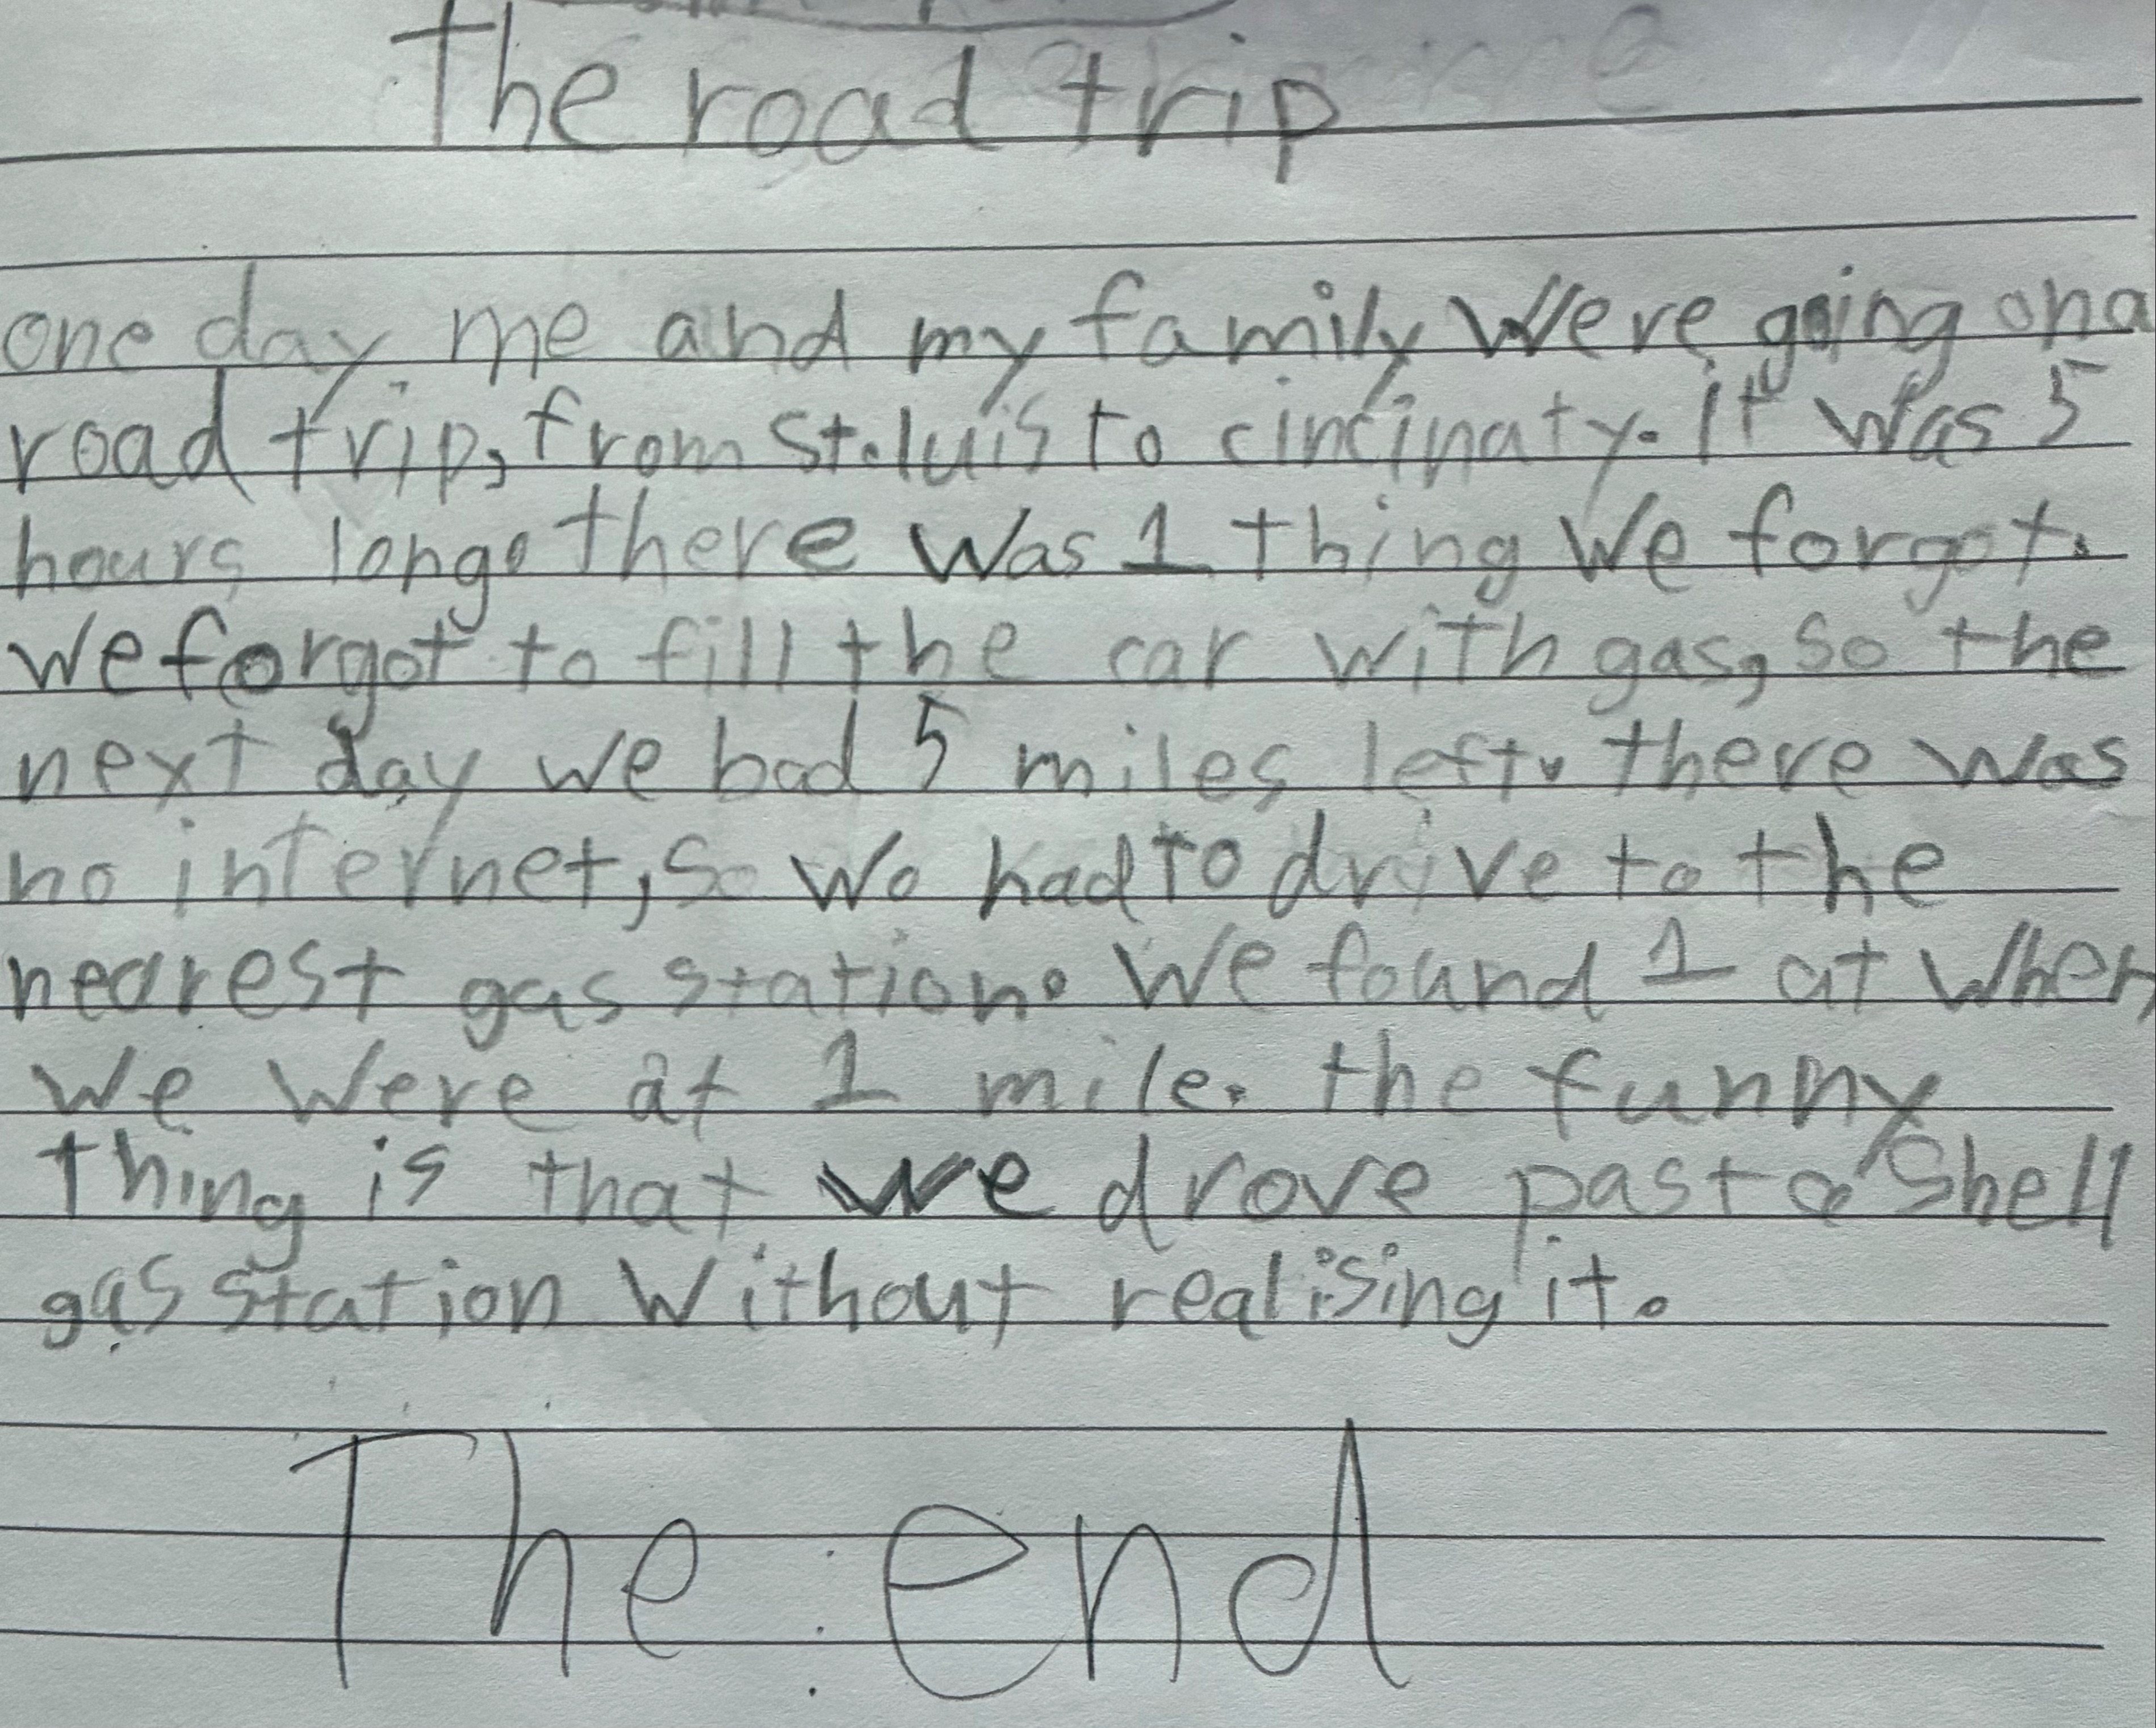 The road trip
one day me and my family were going on a
road trip, from st.luis to cincinaty. It was 5
hours long. there was 1 thing we forgot.
we forgot to fill the car with gas, so the
next day we had 5 miles left. there was
no internet, so we had to drive to the
nearest gas station. We found 1 at when
we were at 1 mile. the funny
thing is that we drove past a shell
gas station without realising it.
The end